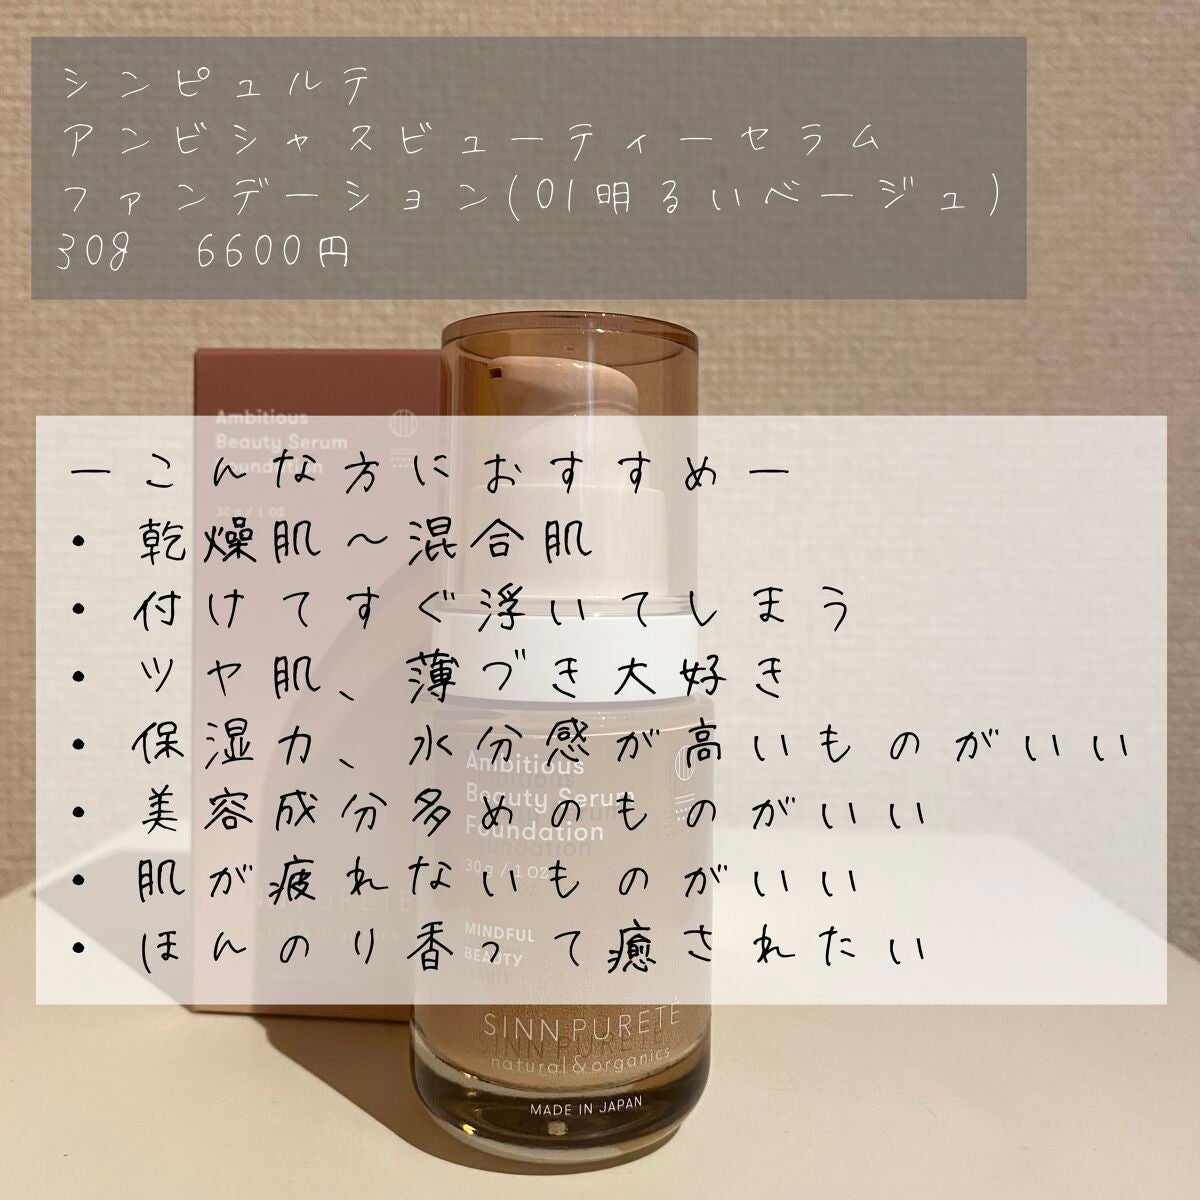 シンピュルテ
アンビシャスビューティーセラム
ファンデーション(01明るいベージュ)
30g 6600円
Ambitious
Beauty Serum
Foundation
30g / 1 oz
ーこんな方におすすめー
・乾燥肌〜混合肌
・付けてすぐ浮いてしまう
・ツヤ肌、薄づき大好き
・保湿力、水分感が高いものがいい
・美容成分多めのものがいい
・肌が疲れないものがいい
・ほんのり香って癒されたい
Ambitious
Beauty Serum
Foundation
30g / 1 OZ
MINDFUL
BEAUTY
SINN PURETÉ
natural&organics
MADE IN JAPAN